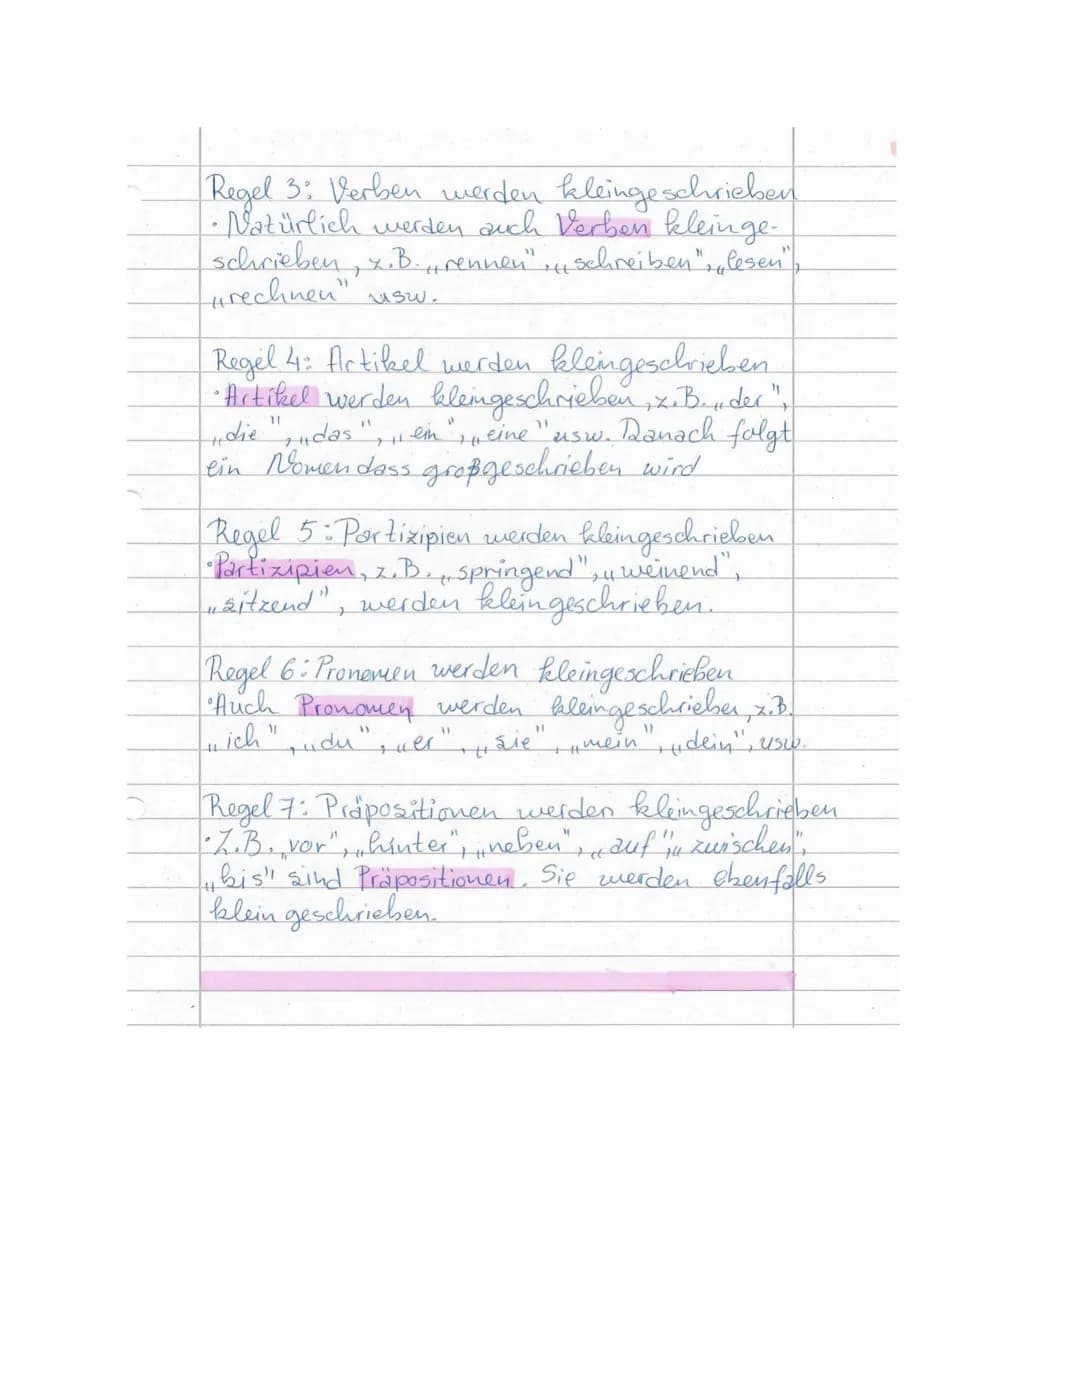 Regel 3: Verben werden kleingeschrieben
· Natürlich werden auch Verben kleinge-
schrieben, z.B. „rennen", „schreiben", „lesen",
„rechnen" usw.
Regel 4: Artikel werden kleingeschrieben
· Artikel werden kleingeschrieben, z.B. „der",
„die", „das", „ein", „eine" usw. Danach folgt
ein Nomen dass großgeschrieben wird
Regel 5: Partizipien werden kleingeschrieben
· Partizipien, z.B. „springend", „weinend",
„sitzend", werden kleingeschrieben.
Regel 6: Pronomen werden kleingeschrieben
· Auch Pronomen werden kleingeschrieben, z.B.
„ich", „du", „er", „sie", „mein", „dein", usw.
Regel 7: Präpositionen werden kleingeschrieben
· Z.B. „vor", „hinter", „neben", „auf", „zwischen",
„bis" sind Präpositionen. Sie werden ebenfalls
klein geschrieben.